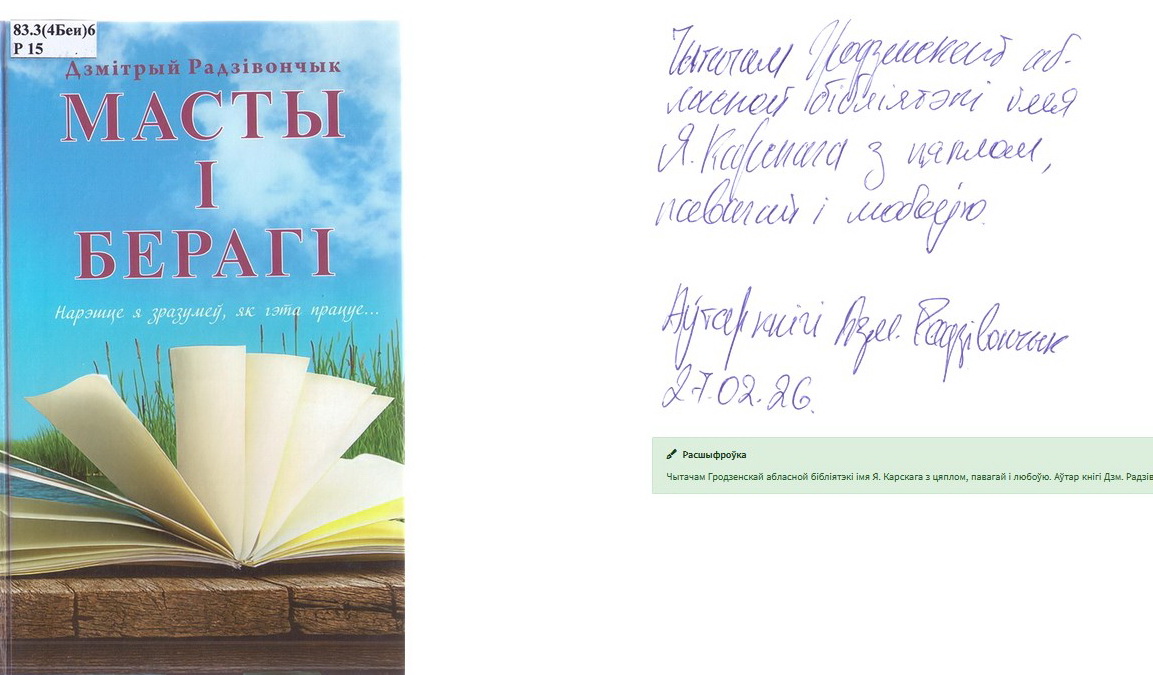 83.3(4Беи)6
Р 15
Дзмітрый Радзівончык
МАСТЫ
І
БЕРАГІ
Нарэшце я зразумеў, як гэта працуе...
Чытачам Гродзенскай аб-
ласной бібліятэкі імя
Я. Карскага з цяплом,
павагай і любоўю.
Аўтар кнігі Дзм. Радзівончык
27.02.26.
Расшыфроўка
Чытачам Гродзенскай абласной бібліятэкі імя Я. Карскага з цяплом, павагай і любоўю. Аўтар кнігі Дзм. Радзів